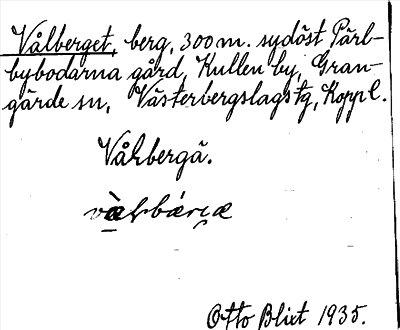 Vålberget, berg, 300 m. sydöst Pärl-
bybodarna gård, Kullen by, Gran-
gärde sn, Västerbergslags tg, Kopp l.
Vålbergä.
Otto Blixt 1935.